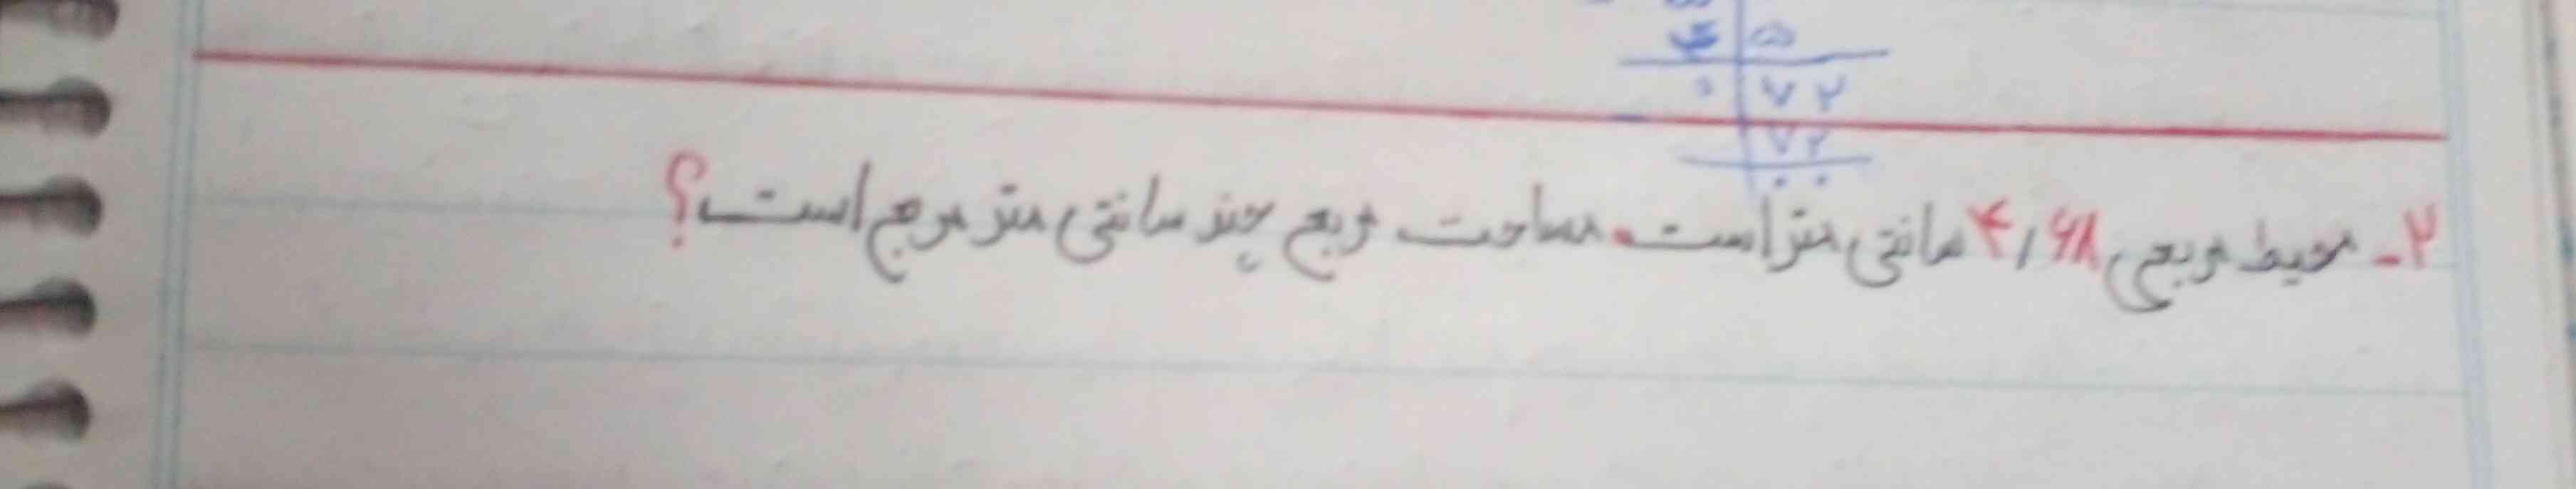 ۵
۰ ۷۲
۷۲
۰۰
۲- محیط مربعی ۴/۶۸ سانتی متر است. مساحت مربع چند سانتی متر مربع است؟